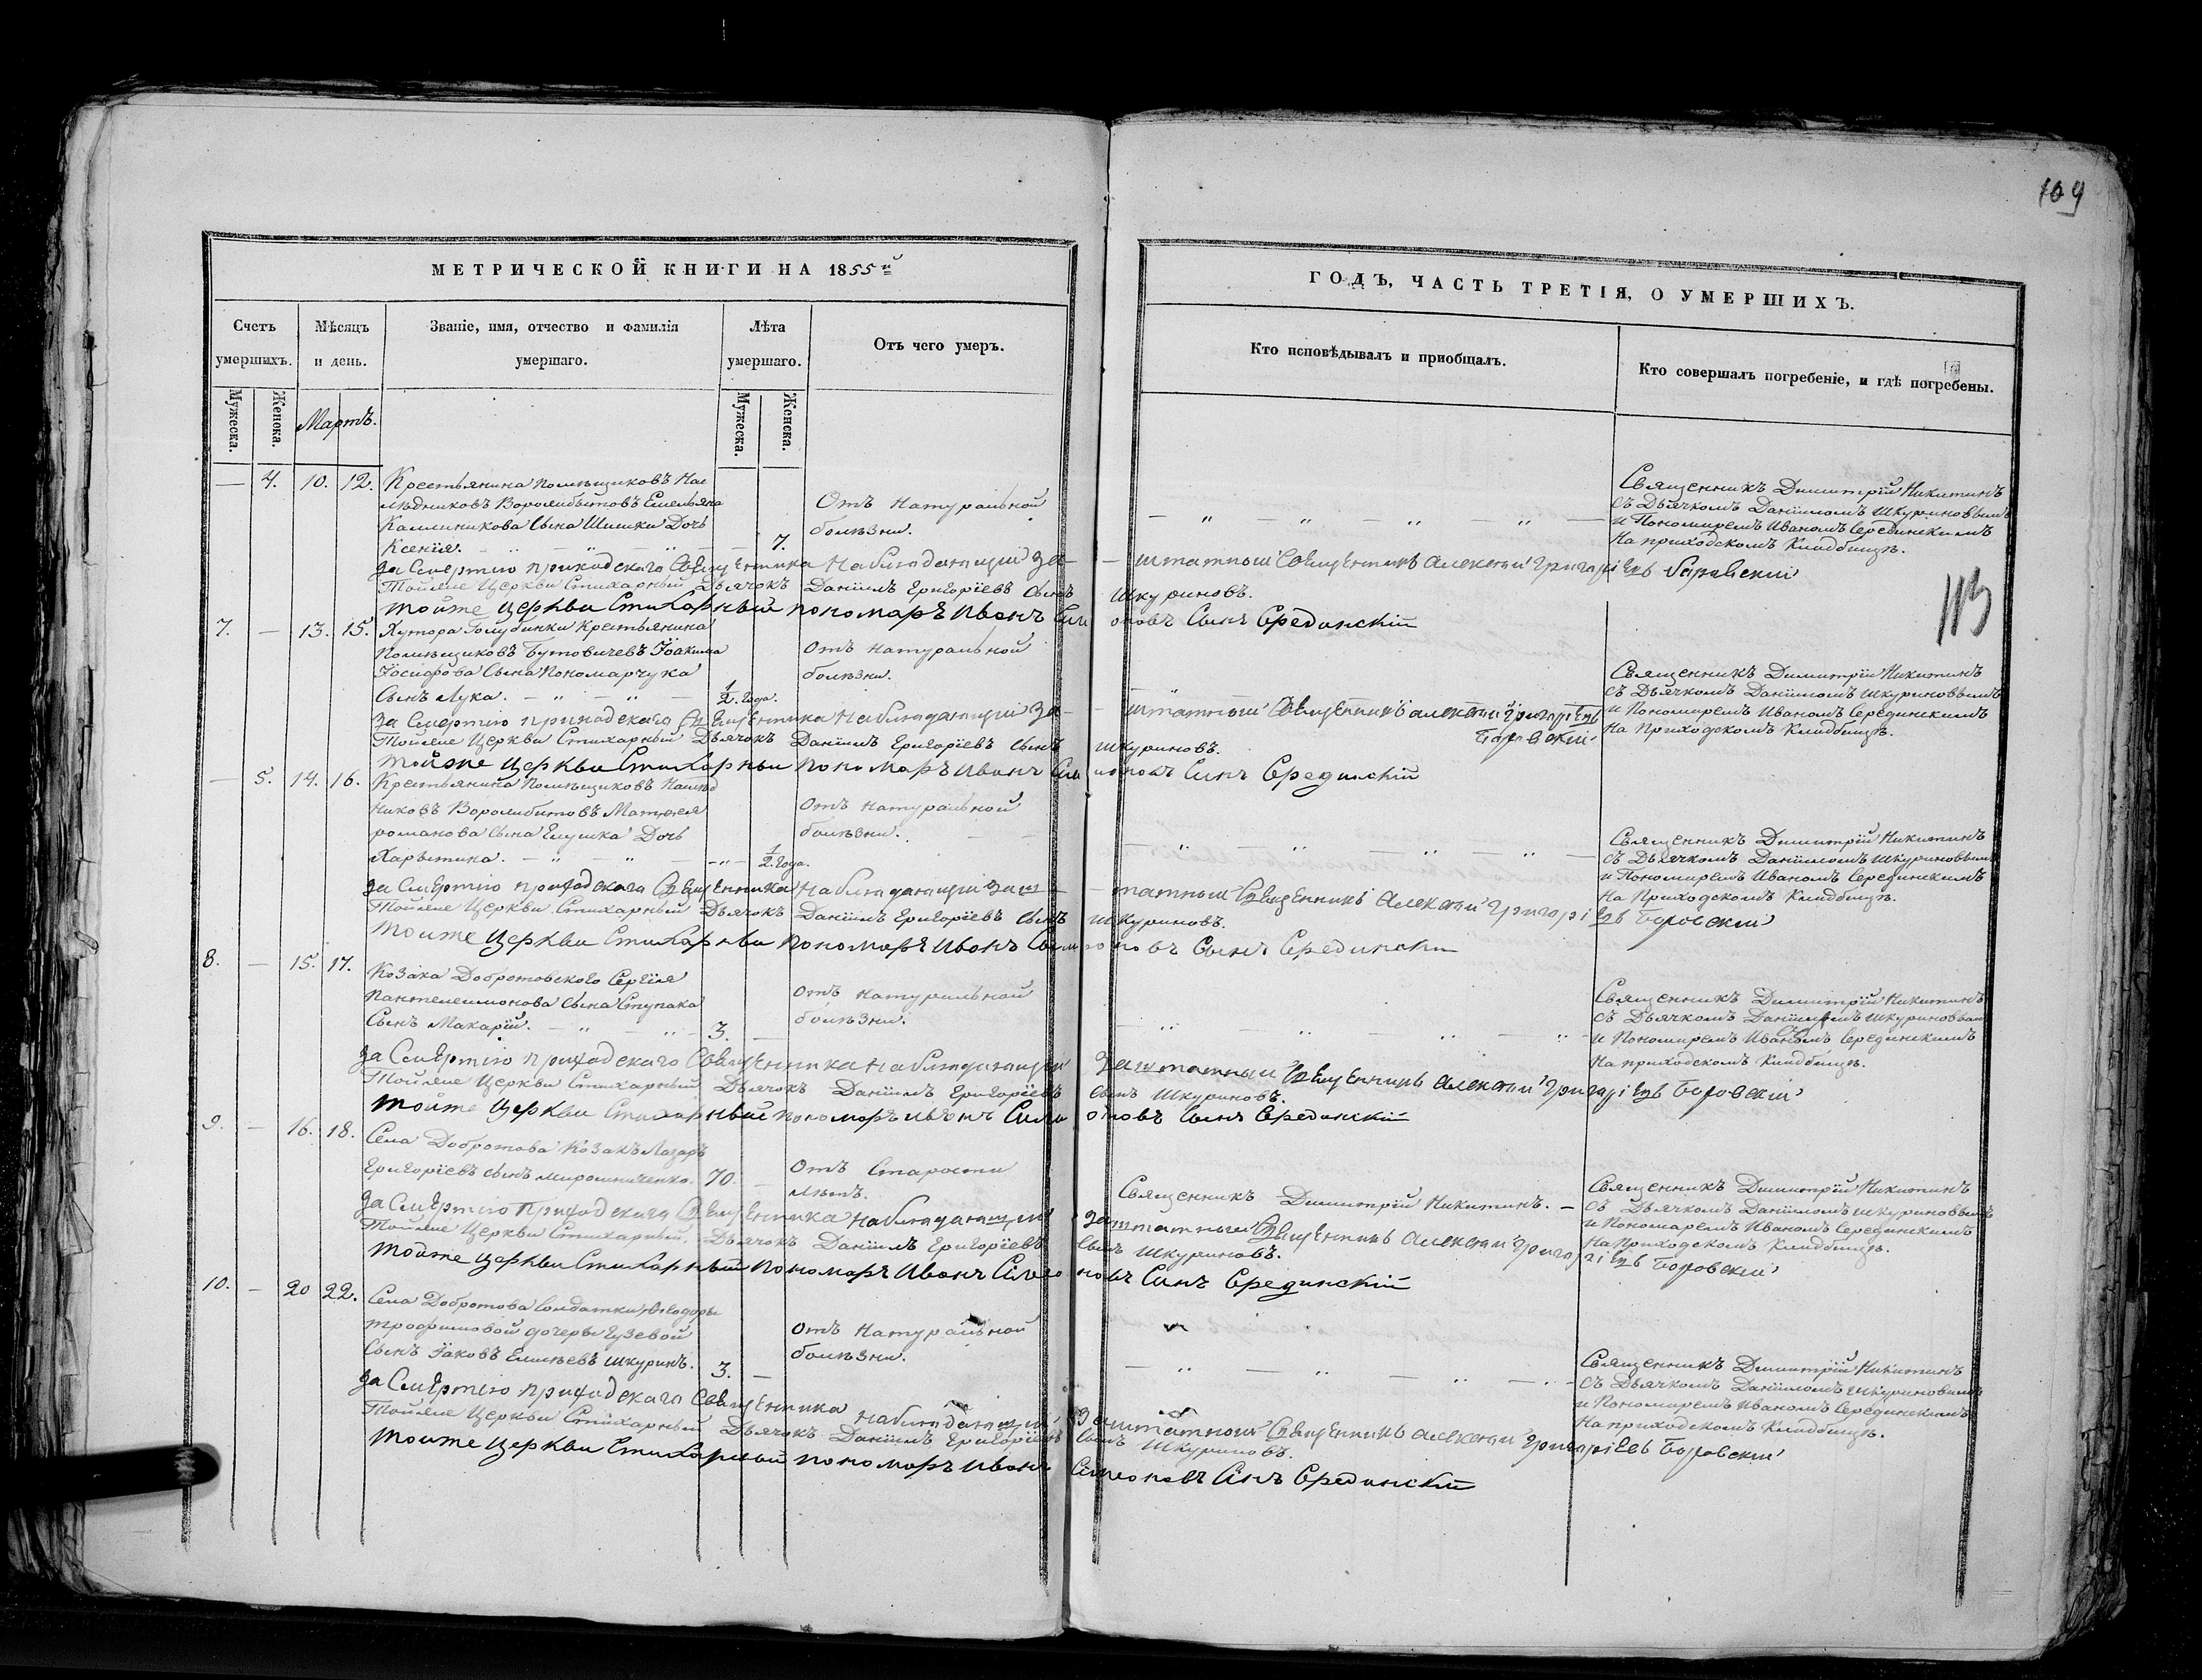 109
МЕТРИЧЕСКОЙ КНИГИ НА 1855й
ГОДЪ, ЧАСТЬ ТРЕТІЯ, О УМЕРШИХЪ.
Счетъ умершихъ.
Мѣсяцъ и день.
Званіе, имя, отчество и фамилія умершаго.
Лѣта умершаго.
Отъ чего умеръ.
Кто исповѣдывалъ и пріобщалъ.
Кто совершалъ погребеніе, и гдѣ погребены.
Мужеска.
Женска.
Мартъ.
Мужеска.
Женска.
— 4. 10. 12.
Крестьянина помѣщиковъ Нас
лѣдниковъ Воронибытовъ Емельяна
Калинникова сына Шишки Дочь
Ксенія. 7.
Отъ натуральной
болѣзни.
Священникъ Димитрій Никитинъ
съ Дьячкомъ Даніиломъ Шкуриновымъ
и Пономаремъ Иваномъ Серединскимъ
На приходскомъ Кладбищѣ.
За Смертію приходскаго Священника Наблюдающій За- штатный Священникъ Алексѣй Григоріевъ Боровскій
Тойже Церкви Стихарный Дьячокъ Даніилъ Григоріевъ сынъ Шкуриновъ.
Тойже Церкви Стихарный пономаръ Иванъ Симоновъ Сынъ Срединскій
113
7. — 13. 15.
Хутора Голубинки Крестьянина
Помѣщиковъ Бутовичевъ Іоакима
Іосифова сына Пономарчука
Сынъ Лука. 1/2 года.
Отъ натуральной
болѣзни.
Священникъ Димитрій Никитинъ
съ Дьячкомъ Даніиломъ Шкуриновымъ
и Пономаремъ Иваномъ Серединскимъ
На Приходскомъ Кладбищѣ.
За Смертію приходскаго Священника Наблюдающій За- штатный Священникъ Алексѣй Григоріевъ
Боровскій
Тойже Церкви Стихарный Дьячокъ Даніилъ Григоріевъ сынъ Шкуриновъ.
Тойже Церкви Стихарный пономаръ Иванъ Симоновъ Синъ Срединскій
— 5. 14. 16.
Крестьянина Помѣщиковъ Наслѣд
никовъ Воронибитовъ Матѳея
романова сына Глушка Дочь
Харытина. 1/2 года.
Отъ натуральной
болѣзни.
Священникъ Димитрій Никитинъ
съ Дьячкомъ Даніиломъ Шкуриновымъ
и Пономаремъ Иваномъ Серединскимъ
На Приходскомъ Кладбищѣ.
За Смертію приходскаго Священника Наблюдающій заш- татный Священникъ Алексѣй Григоріевъ Боровскій
Тойже Церкви Стихарный Дьячокъ Даніилъ Григоріевъ сынъ Шкуриновъ.
Тойже Церкви Стихарный пономаръ Иванъ Симоновъ Сынъ Срединскій
8. — 15. 17.
Козака Добротовского Сергія
Пантелеимонова сына Ступака
Сынъ Макарій. 3. —
Отъ натуральной
болѣзни.
Священникъ Димитрій Никитинъ
съ Дьячкомъ Даніиломъ Шкуриновымъ
и Пономаремъ Иваномъ Серединскимъ
На приходскомъ Кладбищѣ.
За Смертію приходскаго Священника Наблюдающій Заштатный Священникъ Алексѣй Григоріевъ Боровскій
Тойже Церкви Стихарный Дьячокъ Даніилъ Григоріевъ сынъ Шкуриновъ.
Тойже Церкви Стихарный пономаръ Иванъ Симоновъ Сынъ Срединскій
9. — 16. 18.
Села Добротова Козакъ Лазаръ
Григоріевъ сынъ Мирошниченко. 70. —
Отъ Старости
лѣтъ.
Священникъ Димитрій Никитинъ. —
Священникъ Димитрій Никитинъ
съ Дьячкомъ Даніиломъ Шкуриновымъ
и Пономаремъ Иваномъ Серединскимъ
На Приходскомъ Кладбищѣ.
За Смертію Приходскаго Священника Наблюдающій Заштатный Священникъ Алексѣй Григоріевъ Боровскій
Тойже Церкви Стихарный Дьячокъ Даніилъ Григоріевъ сынъ Шкуриновъ.
Тойже Церкви Стихарный Пономаръ Иванъ Симеоновъ Синъ Срединскій
10. — 20 22.
Села Добротова Солдатки Ѳеодоры
Трофимовой дочеры Гузевой
Сынъ Іаковъ Елисѣевъ Шкуринъ. 3. —
Отъ натуральной
болѣзни.
Священникъ Димитрій Никитинъ
съ Дьячкомъ Даніиломъ Шкуриновымъ
и Пономаремъ Иваномъ Серединскимъ
На приходскомъ Кладбищѣ.
За Смертію приходскаго Священника Наблюдающій Заштатный Священникъ Алексѣй Григоріевъ Боровскій
Тойже Церкви Стихарный Дьячокъ Даніилъ Григоріевъ сынъ Шкуриновъ.
Тоиже Церкви Стихарный пономаръ Иванъ Симеоновъ Синъ Срединскій